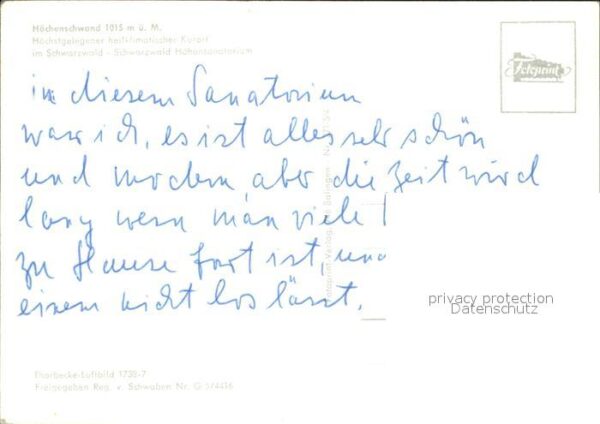 Höchenschwand 1015 m ü. M.
Höchstgelegener heilklimatischer Kurort
im Schwarzwald - Schwarzwald Höhensanatorium
Fotoprint
in diesem Sanatorium
war ich, es ist alles sehr schön
und modern, aber die Zeit wird
lang wenn man viele!
zu Hause fort ist, und
einem nicht los lässt.
privacy protection
Datenschutz
Thorbecke-Luftbild 1738-7
Freigegeben Reg. v. Schwaben Nr. G